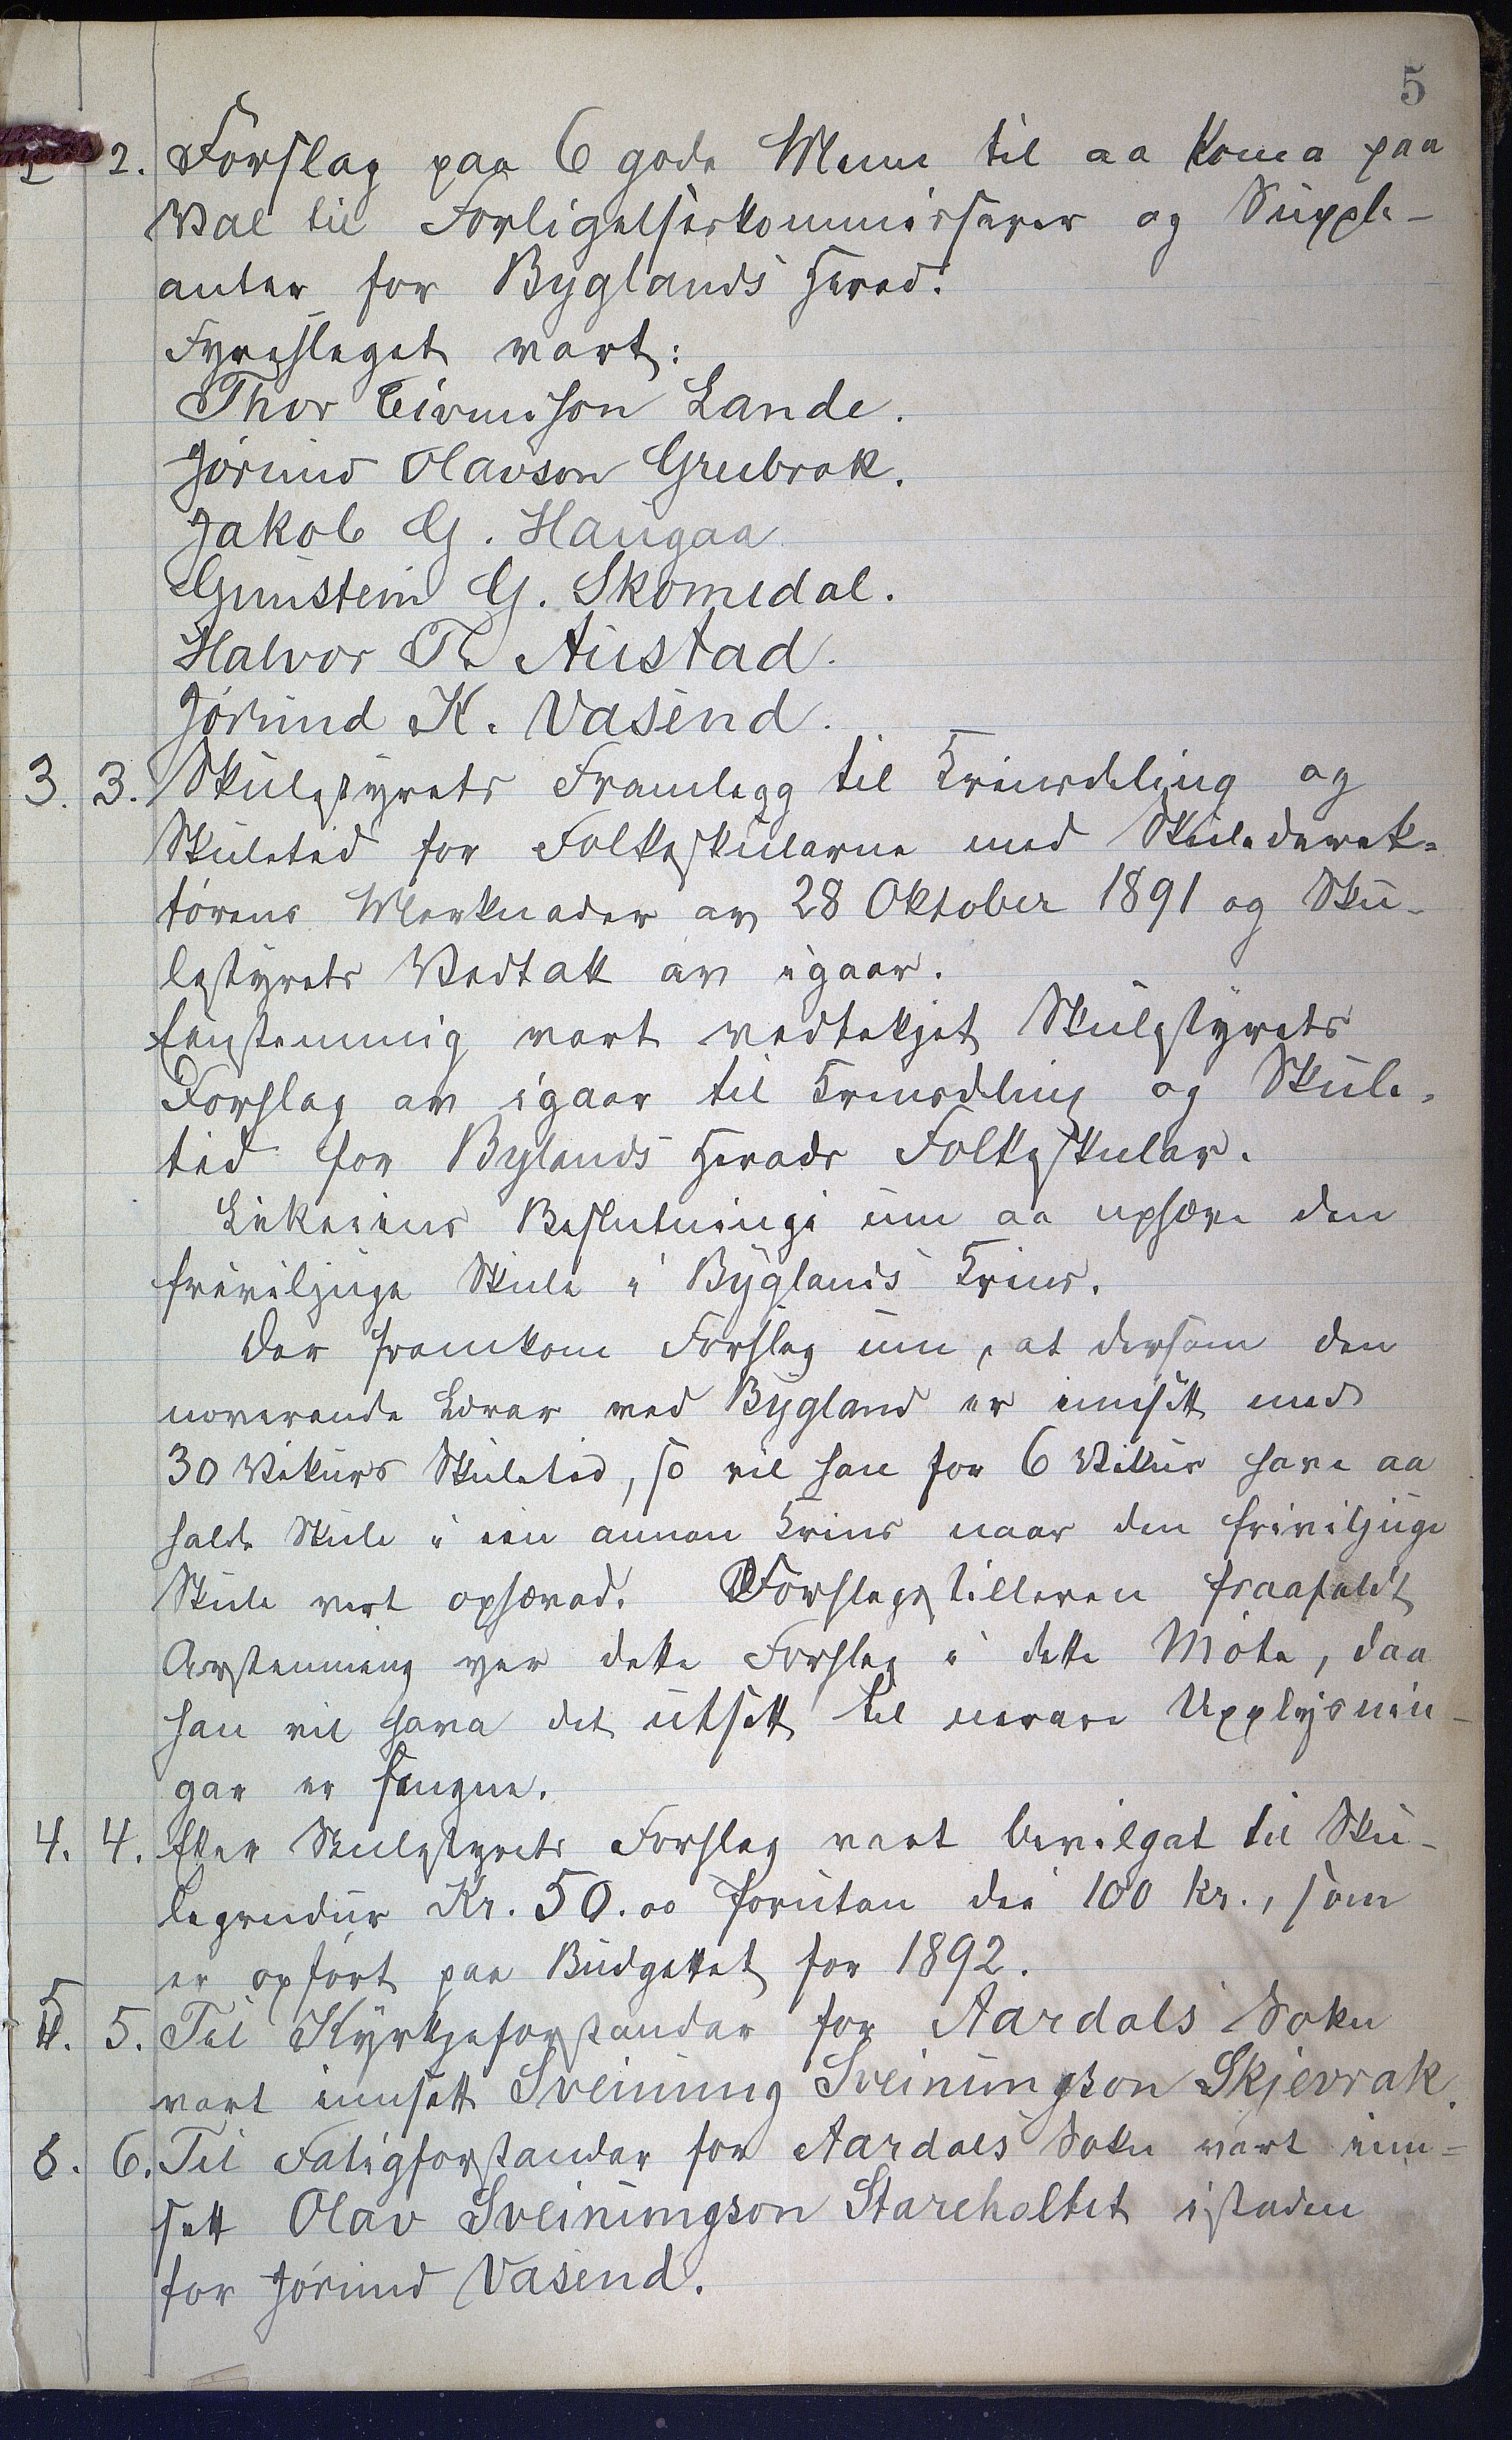 5
2 2. Forslag paa 6 gode Menn til aa koma paa
Val til Forligelseskommissærer og Supple-
anter for Byglands Herad.
Fyreslaget vart:
Thor Eivindson Lande.
Jórund Olavson Grubrok.
Jakob G. Haugaa
Gunstein G. Skomedal.
Halvor T. Austad.
Jórund K. Vasend.
3. 3. Skulestyrets Framlegg til Krinsdeling og
Skuletid for Folkeskularne med Skuledirek-
tórens Merknader av 28 Oktober 1891 og Sku-
lestyrets Vedtak av igaar.
Einstemmig vart vedtekjet Skulestyrets
Forslag av igaar til Krinsdeling og Skule-
tid for Bylands Herads Folkeskular.
Likeeins Beslutningi um aa uphæve den
friviljuge Skule i Byglands Krins.
Der framkom Forslag um, at dersom den
noverande Lærar ved Bygland er innsett med
30 Vikurs Skuletid, so vil han for 6 Vikur hava aa
halde Skule i ein annan Krins naar den friviljuge
Skule vert ophævad. Forslagsstilleren fraafaldt
Avstemning yver dette Forslag i dette Móte, daa
han vil hava det utsett til nærare Upplysnin-
gar er fengne.
4. 4. Etter Skulestyrets Forslag vart bevilgat til Sku-
legreidur Kr. 50.00 forutan dei 100 kr., som
er opfórt paa Budgettet for 1892.
5. 5. Til Kyrkjeforstandar for Aardals Sokn
vart innsett Sveinung Sveinungson Skjevrak.
6. 6. Til Fatigforstandar for Aardals Sokn vart inn-
sett Olav Sveinungson Stareholtet istaden
for Jórund Vasend.